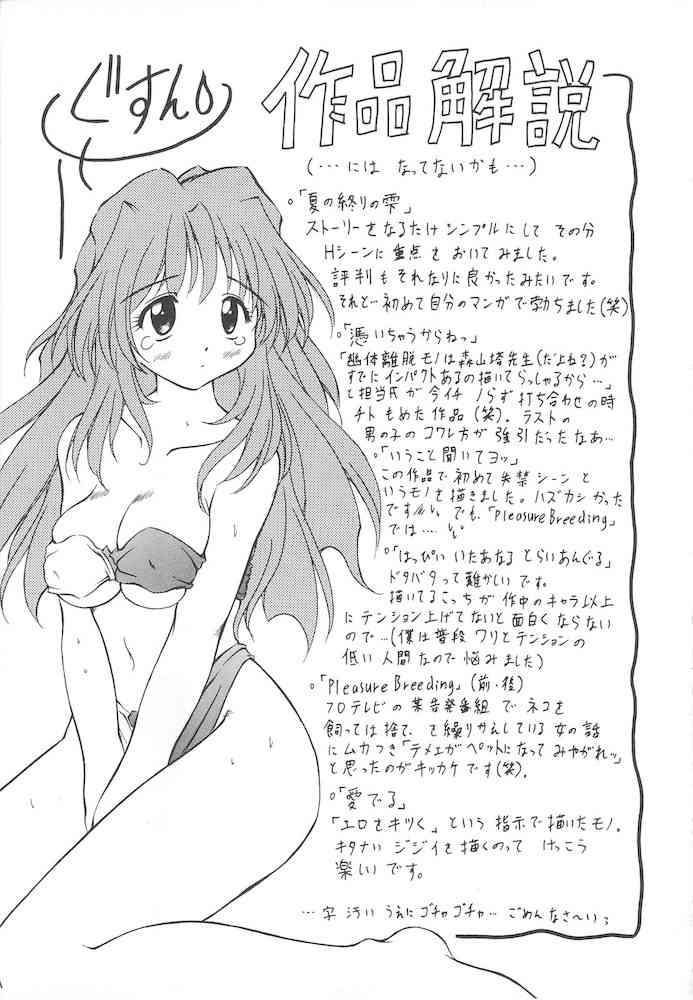 ぐすん
作品解説
(…には なってないかも…)
。「夏の終りの雫」
ストーリーをなるたけ シンプルにして その分
Hシーンに重点を おいてみました。
評判もそれなりに良かったみたいです。
それと…初めて自分のマンガで勃ちました(笑)
。「憑いちゃうからねっ」
「幽体離脱モノは森山塔先生(だよね?)が
すでにインパクトあるの描いてらっしゃるから…」
と担当氏が今イチ ノらず打ち合わせの時
チト もめた作品(笑)。ラストの
男の子のコワレ方が強引だったなあ…
。「いうこと聞いてヨッ」
この作品で初めて失禁シーンと
いうモノを描きました。ハズカシかった
です でも、「Pleasure Breeding」
では……
。「はっぴい いたあなる とらいあんぐる」
ドタバタって難かしいです。
描いてるこっちが作中のキャラ以上
にテンション上げてないと面白くならない
ので…(僕は普段ワリとテンションの
低い人間なので悩みました)
。「Pleasure Breeding」(前・後)
フロテレビの某告発番組でネコを
飼っては捨て、を繰りかえしている女の話
にムカつき「テメェがペットになってみやがれッ」
と思ったのがキッカケです(笑)。
。「愛でる」
「エロをキツく」という指示で描いたモノ。
キタナいジジイを描くのって けっこう
楽しいです。
…字汚いうえにゴチャゴチャ…ごめんなさ〜いっ